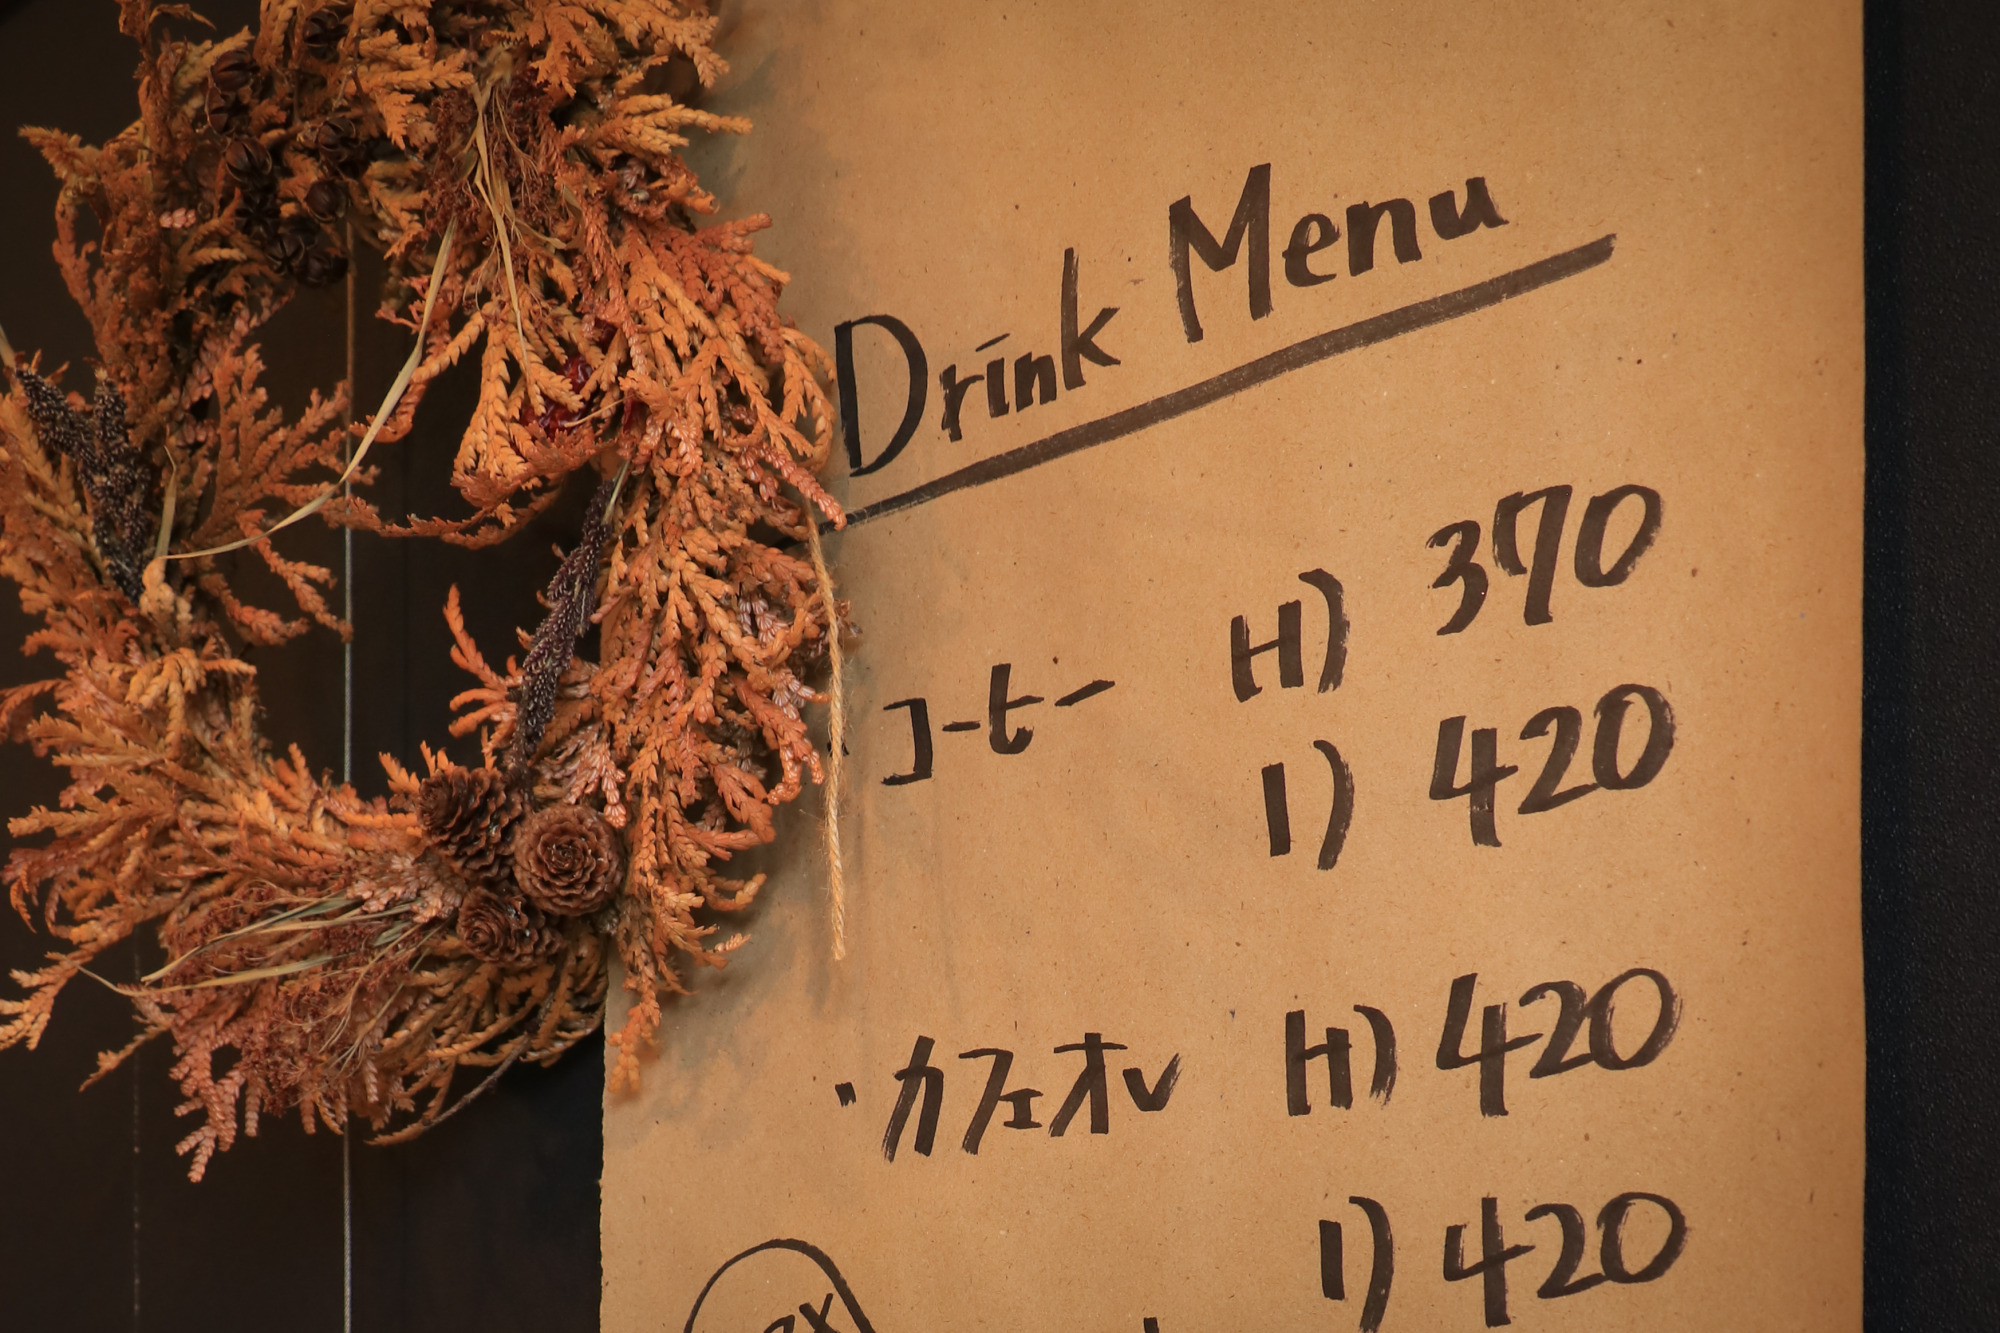 Drink Menu
・コーヒー H) 370
I) 420
・カフェオレ H) 420
I) 420